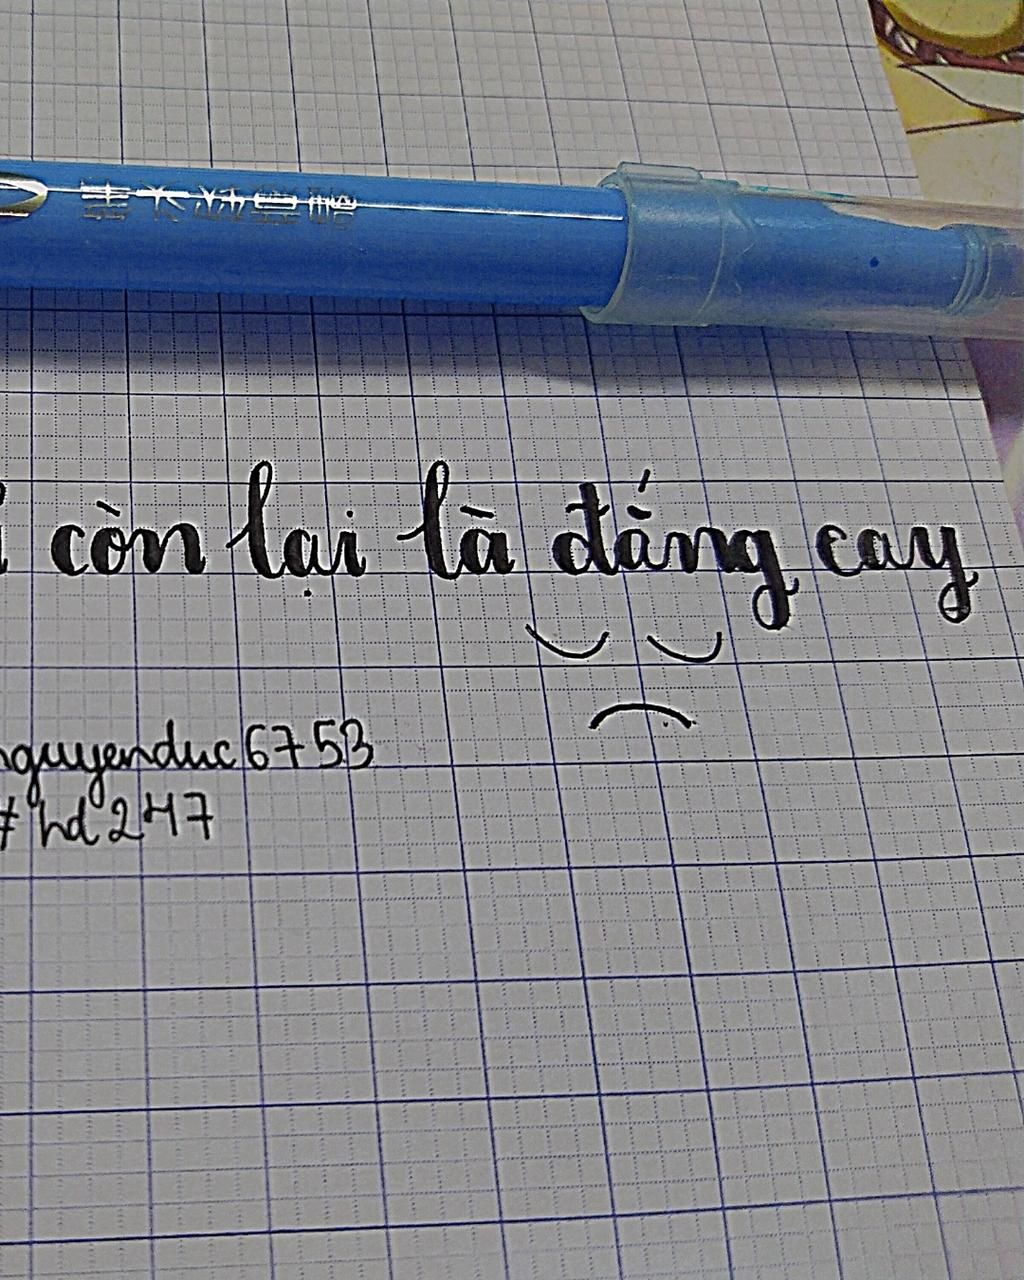 còn lại là đắng cay
nguyenduc6753
#hd247